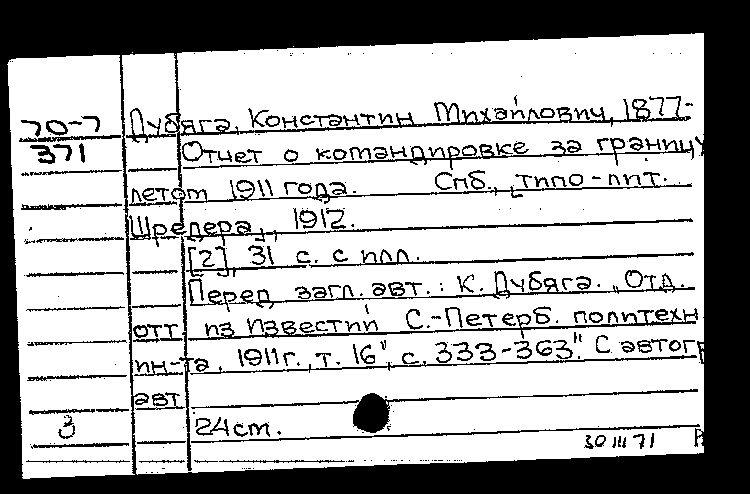 70-7 Дубяга, Константин Михайлович, 1877-
371 Отчет о командировке за границу
летом 1911 года. Спб., типо-лит.
Шредера, 1912.
[2], 31 с. с илл.
Перед загл. авт.: К. Дубяга. "Отд.
отт. из Известий С.-Петерб. политехн
ин-та, 1911г., т. 16", с. 333-363". С автогр
авт
3 24см.
30 III 71